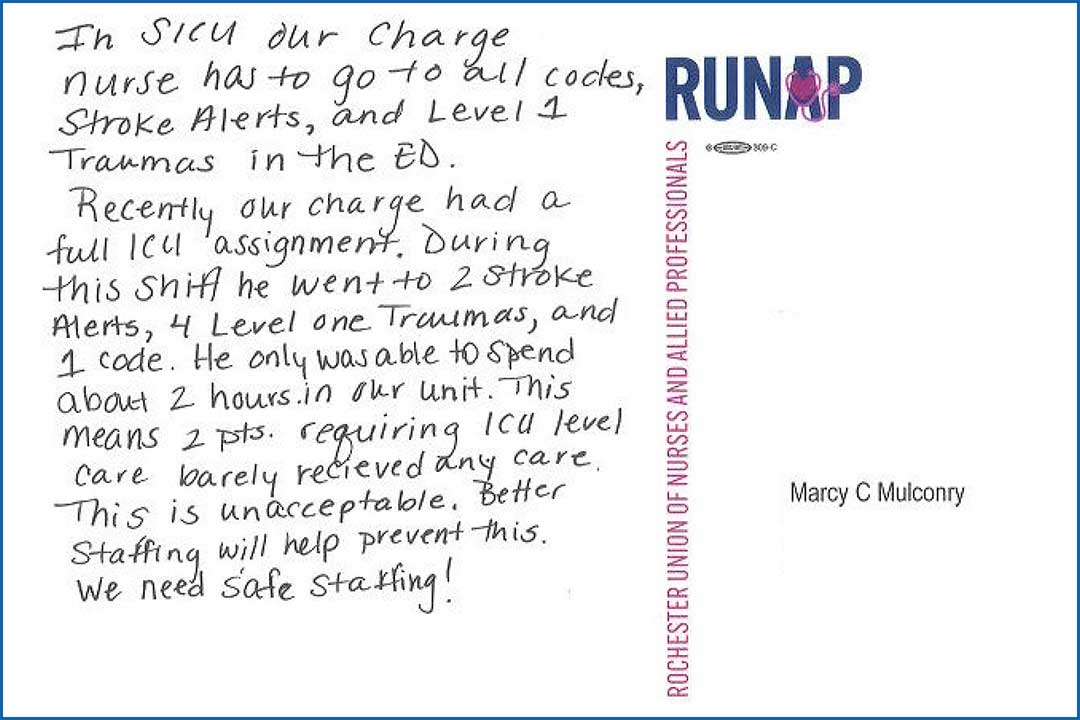 In SICU our Charge
nurse has to go to all codes,
Stroke Alerts, and Level 1
Traumas in the ED.
Recently our charge had a
full ICU assignment. During
this Shift he went to 2 Stroke
Alerts, 4 Level one Traumas, and
1 code. He only was able to spend
about 2 hours.in our unit. This
means 2 pts. requiring ICU level
care barely recieved any care.
This is unacceptable. Better
Staffing will help prevent this.
We need safe Staffing!
RUNAP
309-C
ROCHESTER UNION OF NURSES AND ALLIED PROFESSIONALS
Marcy C Mulconry